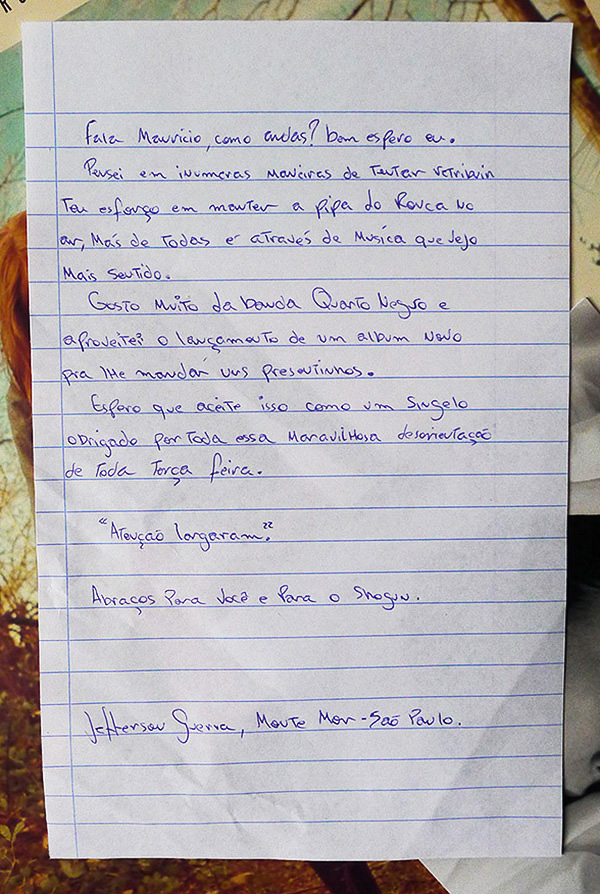 Fala Mauricio, como andas? bem espero eu.
Pensei em inumeras maneiras de tentar retribuir
teu esforço em manter a pipa do Ronca no
ar, mas de todas é através de música que vejo
mais sentido.
Gosto muito da banda Quarto Negro e
aproveitei o lançamento de um album novo
pra lhe mandar uns presentinhos.
Espero que aceite isso como um singelo
obrigado por toda essa maravilhosa desorientação
de toda terça feira.
"Atenção largaram."
Abraços para você e para o Shogun.
Jefferson Guerra, Monte Mor - São Paulo.